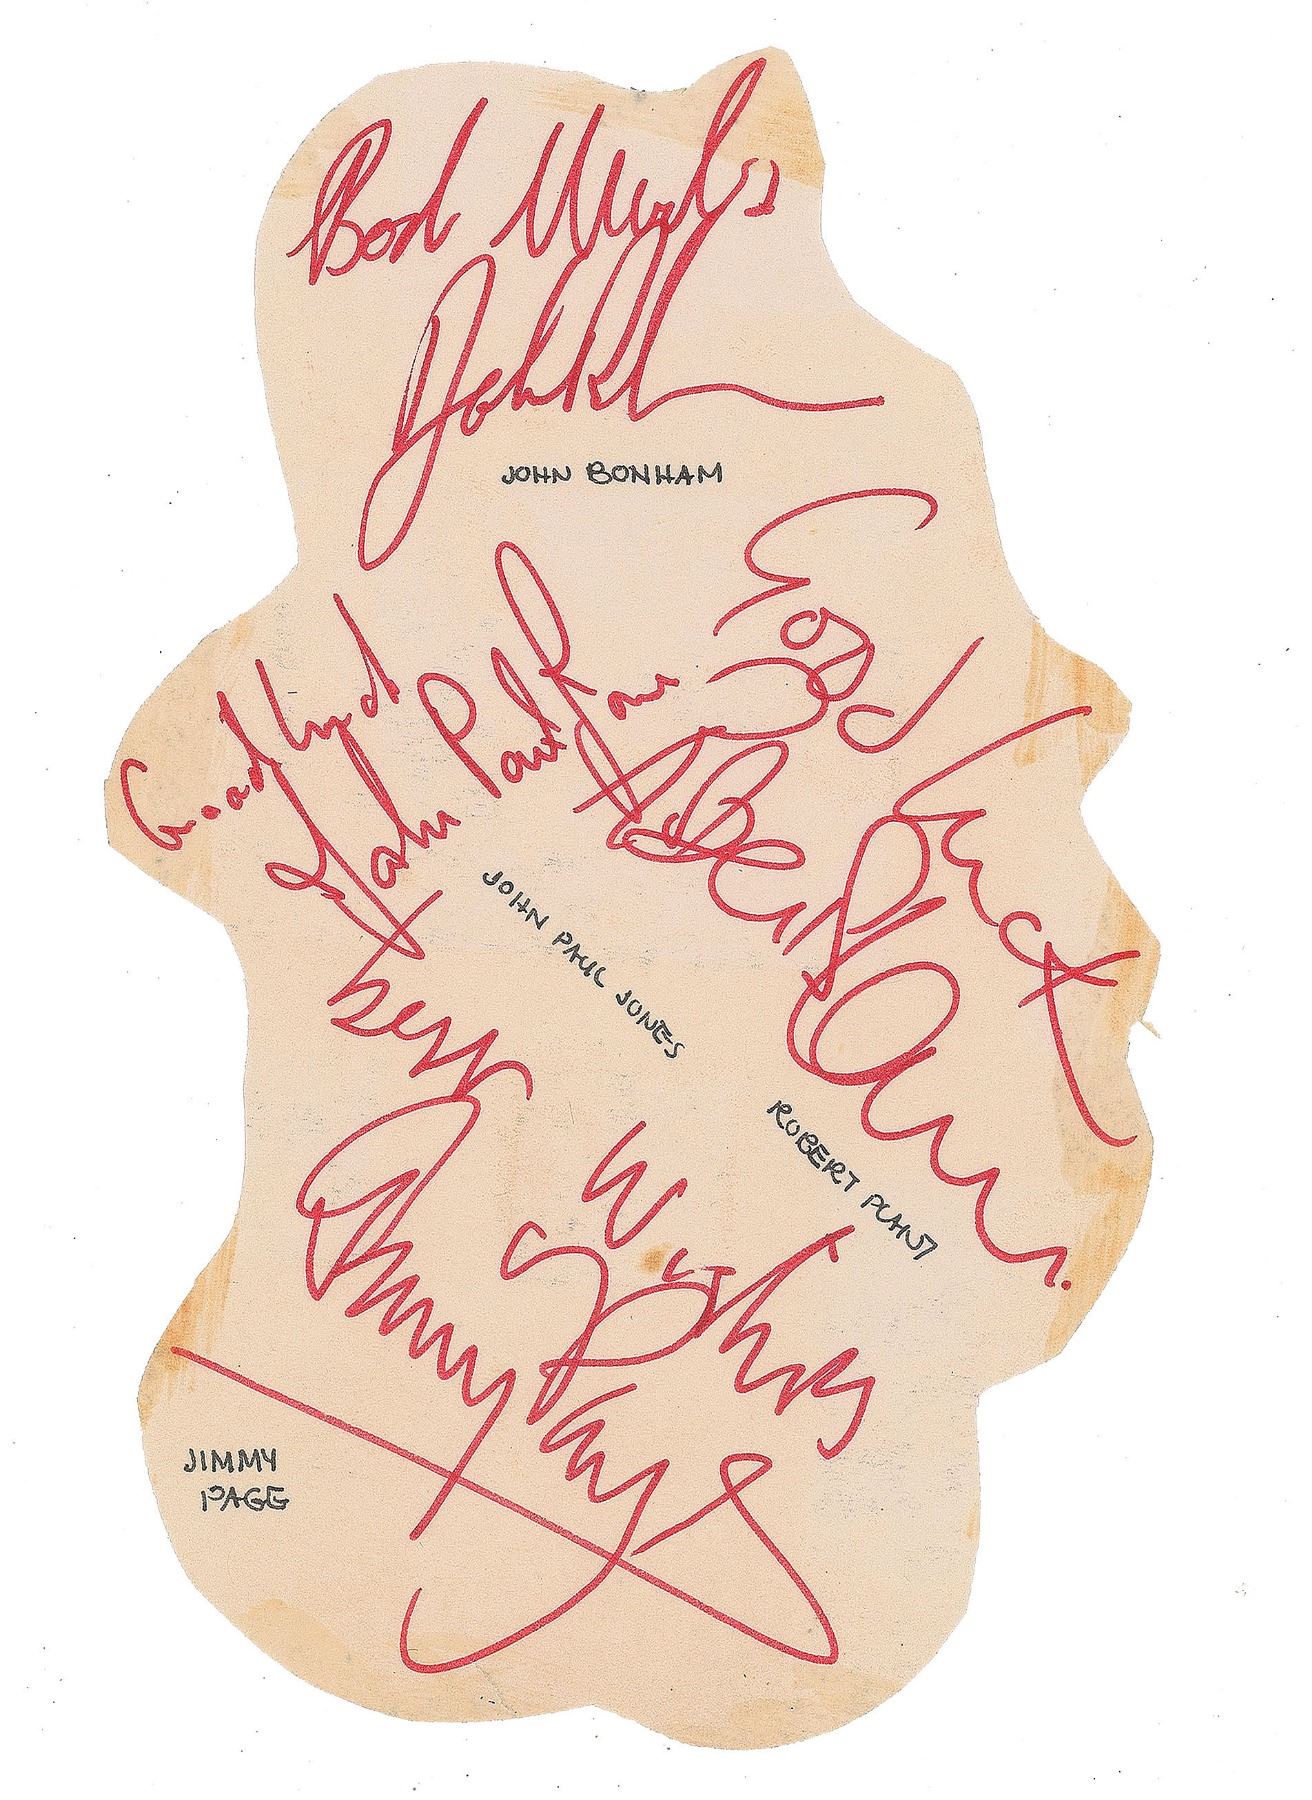 Best Wishes
John Bonham
JOHN BONHAM
Good luck
John Paul Jones
JOHN PAUL JONES
Good luck
Robert Plant.
ROBERT PLANT
best
Wishes
Jimmy Page
JIMMY
PAGE